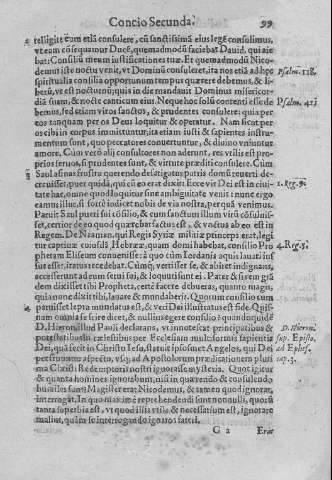 Concio Secunda.
99
telligite eum etiā consulere, cū sanctissimā eius legē consulimus,
vt eam cōsequamur Ducē, quemadmodū faciebat Dauid, qui aie
bat: Consiliū meum iustificationes tuæ. Et quemadmodū Nico-
demus iste noctu venit, vt Dominū consuleret, ita nos etiā ad hęc
spiritualia consilia opportunum tempus quærere debemus, & li-
berū, ve est nocturnū; quis in die mandauit Dominus misericor-
diā suam, & nocte canticum eius. Neque hoc solū contenti esse de
bemus, sed etiam viros sanctos, & prudentes consulere: quia per
eos tanquam per os Deus loquitur & operatur. Nam sicut per
os cibi in corpus immittuntur, ita etiam iusti & sapientes instru-
mentum sunt, quo peccatores conuertuntur, & diuino voluntur
amore. Cum verò alij consultores non aderunt, res vtilis est pro-
prios seruos, si prudentes sunt, & virtute præditi consulere. Cùm
Saul asinas frustra querendo defatigatus patris domū reuerti de-
creuisset, puer quidā, qui cū eo erat dixit: Ecce vir Dei est in ciui-
tate hac, omne quod loquitur sine ambiguitate venit: nunc ergo
eamus illuc, si fortè indicet nobis de via nostra, perquā venimus.
Paruit Saul pueri sui cōsilio, & cum sanctum illum virū cōsuluis-
set, certior de eo quod quærebat factus est, & vnctus ab eo est in
Regem. De Naaman, qui Regis Syriæ militiæ princeps erat, legi
tur captiuæ cuiusdā Hebrææ, quam domi habebat, consilio Pro
phetam Eliseum conuenisse: à quo cùm Iordanis aquis lauari ius
sus esset, iratus recedebat. Cumq; vertisset se, & abiret indignans,
accesserunt ad eum serui sui, & loquuti sunt ei. Pater & si rem grā
dem dixisset tibi Propheta, certè facere debueras, quanto magis,
quia nunc dixit tibi, lauare & mundaberis. Quorum consilio cùm
paruisset lepra mundatus est, & vei Dei illustratus est fide. Quis
nam omnia se scire dicet, & nullius egere consilio? quandoquidē
D. Hieron. illud Pauli declarans, vt innotescat principatibus &
potestatibus in cælestibus per Ecclesiam multiformis sapientia
Dei, quā fecit in Christo Iesu, statuit ipsismet Angelos, qui Dei
perfruuntur aspectu, vsq; ad Apostolorum prædicationem pluri
ma Christi Redemptoris nostri ignorasse mysteria. Quot igitur
& quanta homines ignorabunt, nisi in quærendo & consulendo
humiles sint? Magister erat Nicodemus, & tamen quod ignorat,
interrogat. In quo maximè reprehendendi sunt non nulli, quorū
tanta superbia est, vt quod illis vtile & necessarium est, ignorare
malint, quàm se interrogando ignaros fateri.
G 2
Erat
Psalm. 118.
Psalm. 41.
1. Reg. 9.
4. Reg. 5.
D. Hieron.
sup. Episto.
ad Ephes.
cap. 3.